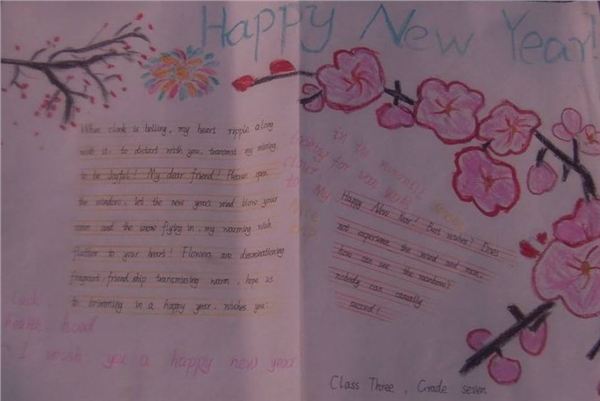 Happy New Year!
When clock is tolling, my heart ripple along
with it. to distant with you, transmit my missing,
to be Joyful! My dear friend! Please open
the window, let the new year's wind blow your
room and the snow flying in, my warming wish
flutter to your heart! Flowers are disseminating
fragrant, friend ship transmissing warm, hope us
to brimming in a happy year, wishes you:
Luck
head
I wish you a happy new year
Happy New Year! Best wishes! Does
not experience the wind and rain,
how can see the rainbow?
nobody can casually
succeed!
Class Three, Grade seven